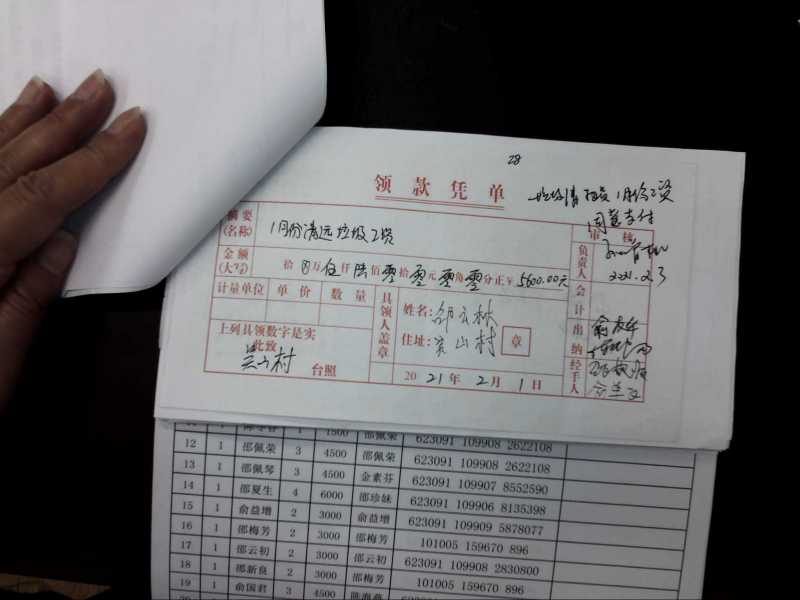 28
领款凭单
1月份工资
支付
摘要
(名称)
1月份清运垃圾工资
审核
金额
(大写)
拾⊗万伍仟陆佰零拾零元零角零分正¥5600.00元
负责人
2021.2.3
计量单位 单价 数量
具领人盖章
姓名:邵云林
住址:吴山村
章
会计
出纳
上列具领数字是实
此致
吴山村 台照
2021年2月1日
经手人
1 1500 邵佩荣
12 1 邵佩荣 3 4500 邵佩荣 623091 109908 2622108
13 1 邵佩琴 3 4500 金素芬 623091 109908 2622108
14 1 邵夏生 4 6000 邵珍妹 623091 109907 8552590
15 1 俞益增 2 3000 俞益增 623091 109906 8135398
16 1 邵梅芳 2 3000 邵梅芳 623091 109909 5878077
17 1 邵云初 2 3000 邵云初 101005 159670 896
18 1 邵新良 2 3000 邵梅芳 623091 109908 2830800
19 1 俞国君 3 4500 101005 159670 896